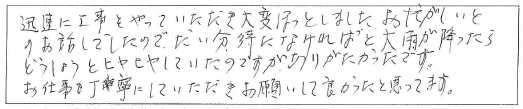 迅速に工事をやっていただき大変ほっとしました。お忙がしいと
のお話でしたので、だい分待になければと、大雨が降ったら
どうしようとヒヤヒヤしていたのですがありがたかったです。
お仕事も丁寧にしていただきお願いして良かったと思ってます。